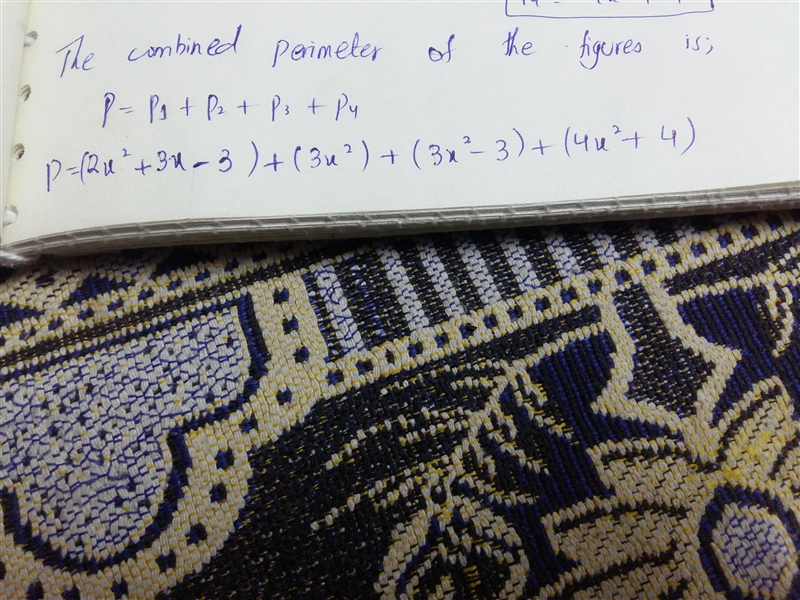 The combined perimeter of the figures is;
P = P1 + P2 + P3 + P4
P=(2x²+3x-3)+(3x²)+(3x²-3)+(4x²+4)